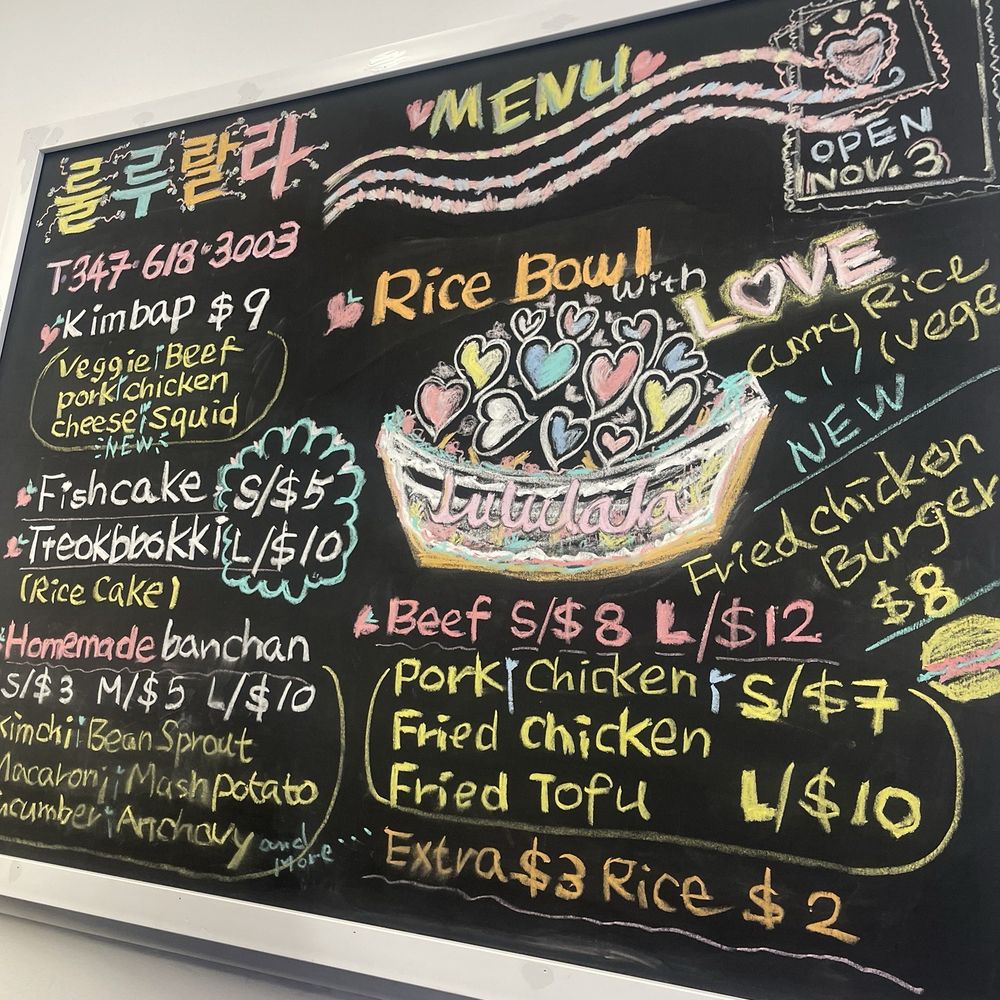 MENU
OPEN
NOV. 3
룰루랄라
T.347.618.3003
Kimbap $9
Veggie Beef
pork chicken
cheese squid
NEW
Fishcake S/$5
Tteokbbokki L/$10
(Rice Cake)
Homemade banchan
S/$3 M/$5 L/$10
Kimchi Bean Sprout
Macaroni Mash potato
Anchovy and
More
Rice Bowl with LOVE
Lululala
Curry Rice
(vege
NEW
Fried chicken
Burger
$8
Beef S/$8 L/$12
Pork Chicken S/$7
Fried Chicken
Fried Tofu L/$10
Extra $3 Rice $2